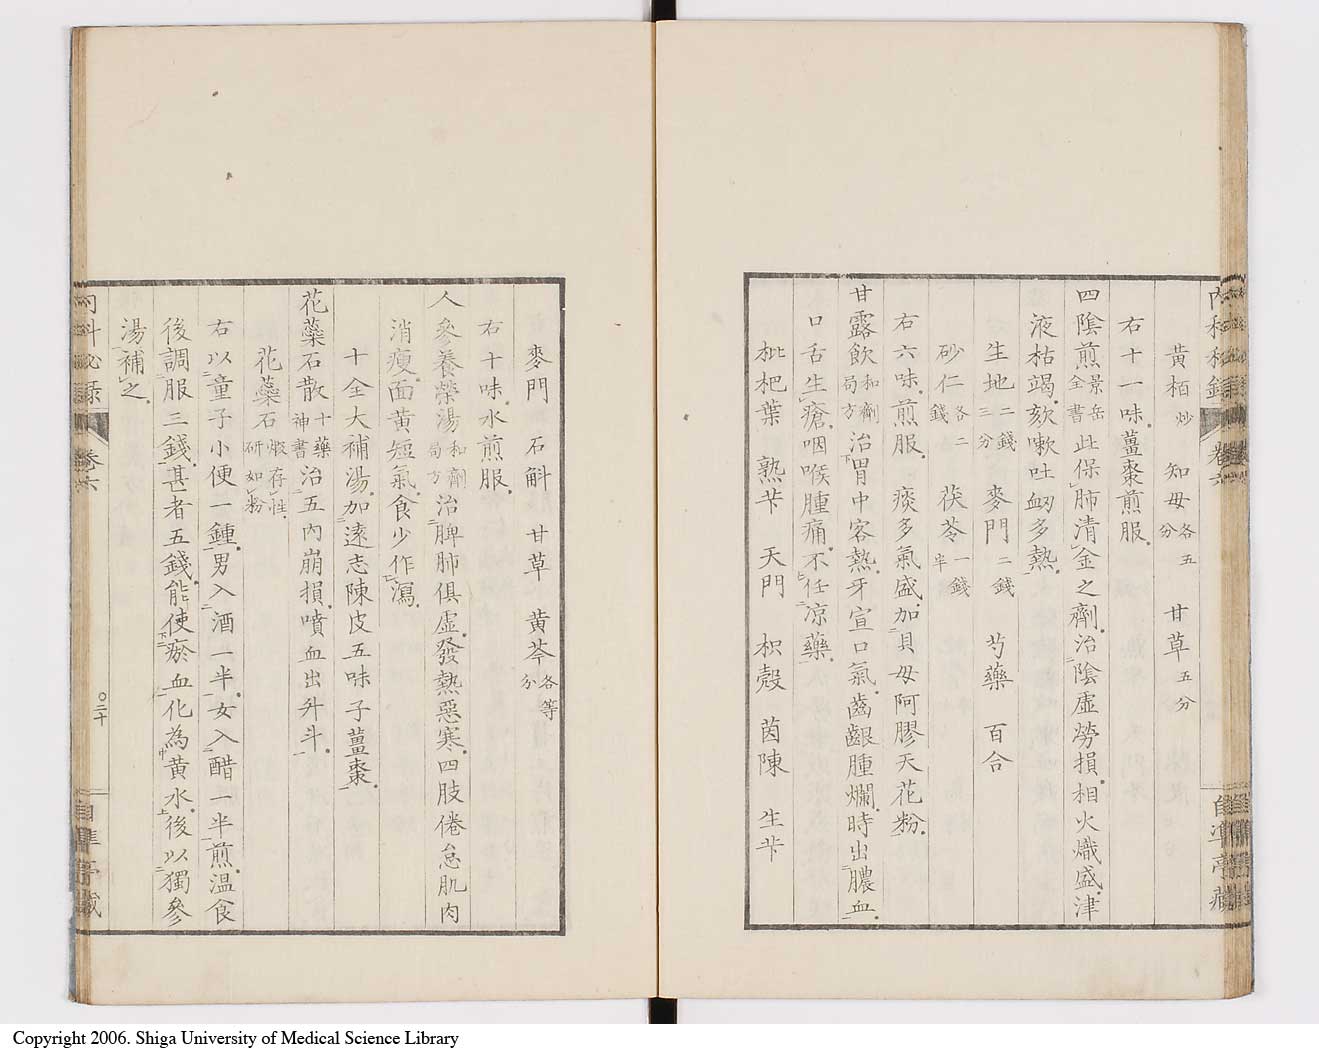 黄栢炒 知母各五分 甘草五分
右十一味薑棗煎服
四陰煎景岳全書此保肺清金之劑治陰虛勞損相火熾盛津
液枯竭欬嗽吐衂多熱
生地二錢三分 麥門二錢 芍藥 百合
砂仁各二錢 茯苓一錢半
右六味煎服痰多氣盛加貝母阿膠天花粉
甘露飲和劑局方治胃中客熱牙宣口氣齒齦腫爛時出膿血
口舌生瘡咽喉腫痛不任凉藥
枇杷葉 熟芐 天門 枳殼 茵陳 生芐
麥門 石斛 甘草 黄芩各等分
右十味水煎服
人參養榮湯和劑局方治脾肺俱虛發熱惡寒四肢倦怠肌肉
消瘦面黄短氣食少作瀉
十全大補湯加遠志陳皮五味子薑棗
花蘂石散十藥神書治五内崩損噴血出升斗
花蘂石煅存性研如粉
右以童子小便一鍾男入酒一半女入醋一半煎温食
後調服三錢甚者五錢能使瘀血化為黄水後以獨參
湯補之
内科秘録 卷六
〇二十
自準亭藏
Copyright 2006. Shiga University of Medical Science Library